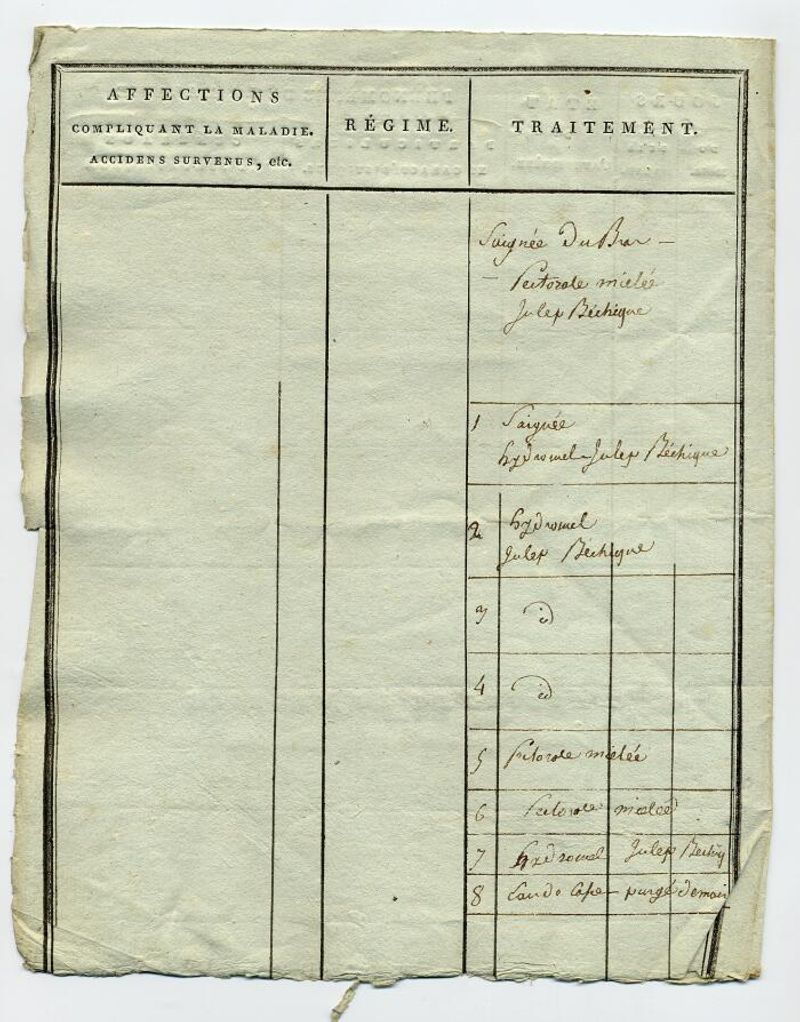 AFFECTIONS
COMPLIQUANT LA MALADIE.
ACCIDENS SURVENUS, etc.
RÉGIME.
TRAITEMENT.
Saignée Du Bras —
— Pectorale mielée
Julep Béchique
1 Saignée
hydromel - Julep Béchique
2 hydromel
Julep Béchique
3 id
4 id
5 Pectorale mielée
6 Pectorale mielée
7 hydromel Julep Bechiq
8 — purgé demain